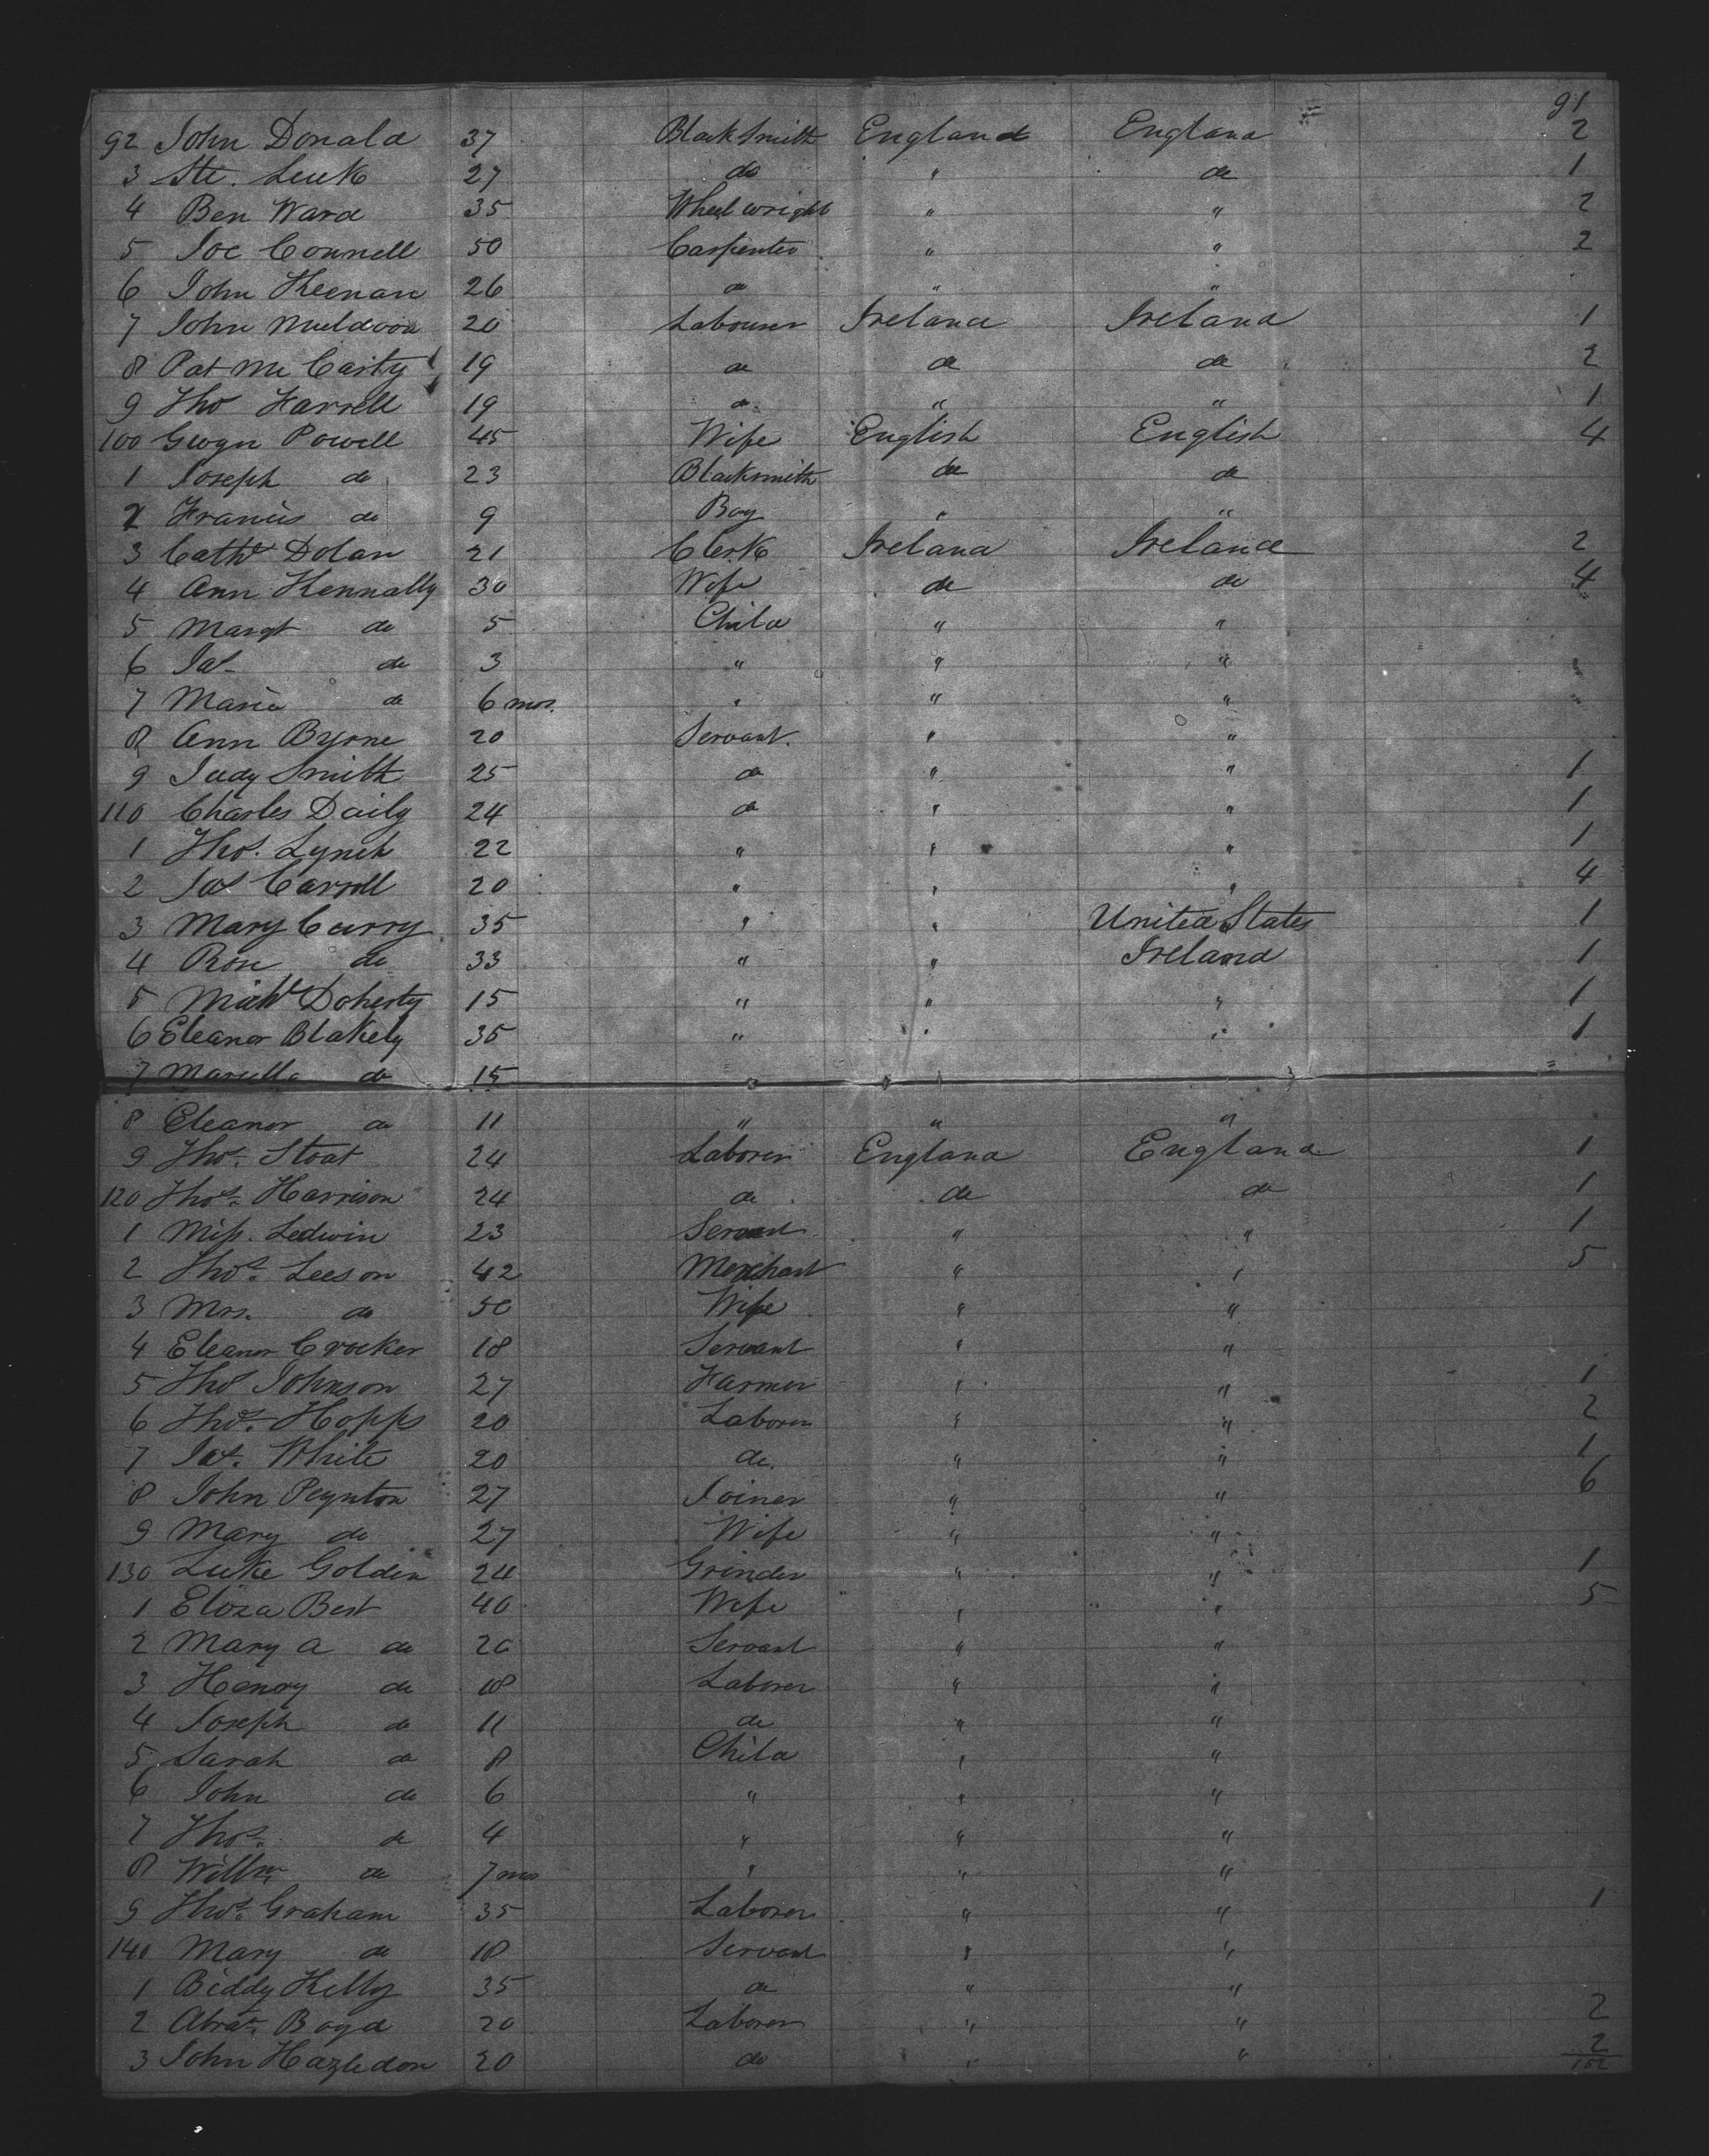 91
92 John Donald 37 Blacksmith England England 2
3 Ste. Luck 27 do " do 1
4 Ben Ward 35 Wheelwright " " 2
5 Joe Connell 50 Carpenter " " 2
6 John Keenan 26 do " "
7 John Muldoon 20 Labourer Ireland Ireland 1
8 Pat McCarty 19 do do do 2
9 Tho Farrell 19 do " " 1
100 Gwyn Powell 45 Wife English English 4
1 Joseph do 23 Blacksmith do do
2 Francis do 9 Boy " "
3 Cath Dolan 21 Clerk Ireland Ireland 2
4 Ann Kennally 30 Wife do do 4
5 Margt do 5 Child " "
6 Jas do 3 " " "
7 Maria do 6 mos. " " "
8 Ann Byrne 20 Servant. " "
9 Judy Smith 25 do " " 1
110 Charles Daily 24 do " " 1
1 Thos. Lynch 22 " " " 1
2 Jas Carroll 20 " " " 4
3 Mary Curry 35 " " United States 1
4 Rose do 33 " " Ireland 1
5 Michl Doherty 15 " " " 1
6 Eleanor Blakely 35 " " " 1
7 Marcella do 15
8 Eleanor do 11 " " "
9 Thos. Stoat 24 Laborer England England 1
120 Thos. Harrison 24 do do do 1
1 Miss. Ledwin 23 Servant " " 1
2 Thos. Leeson 42 Merchant " " 5
3 Mrs. do 50 Wife " "
4 Eleanor Crocker 18 Servant " "
5 Thos Johnson 27 Farmer " " 1
6 Thos. Hopps 20 Laborer " " 2
7 Jas. White 20 do. " " 1
8 John Peynton 27 Joiner " " 6
9 Mary do 27 Wife " "
130 Luke Golden 24 Grinder " " 1
1 Eliza Best 40 Wife " " 5
2 Mary A do 20 Servant " "
3 Henry do 18 Laborer " "
4 Joseph do 11 do " "
5 Sarah do 8 Child " "
6 John do 6 " " "
7 Thos. do 4 " " "
8 Willm do 7 mos " " "
9 Thos. Graham 35 Laborer " " 1
140 Mary do 18 Servant " "
1 Biddy Kelly 35 do " "
2 Abrat. Boyd 20 Laborer " " 2
3 John Hazledon 20 do " " 2
152